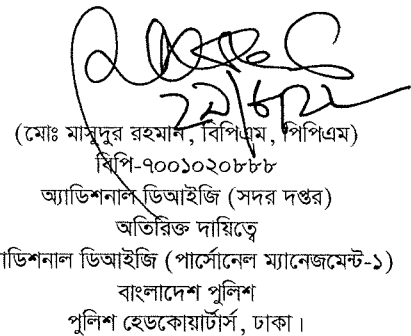 ২৯/৮/২২
(মোঃ মাসুদুর রহমান, বিপিএম, পিপিএম)
বিপি-৭০০১০২০৮৮৮
অ্যাডিশনাল ডিআইজি (সদর দপ্তর)
অতিরিক্ত দায়িত্বে
াডিশনাল ডিআইজি (পার্সোনেল ম্যানেজমেন্ট-১)
বাংলাদেশ পুলিশ
পুলিশ হেডকোয়ার্টার্স, ঢাকা।